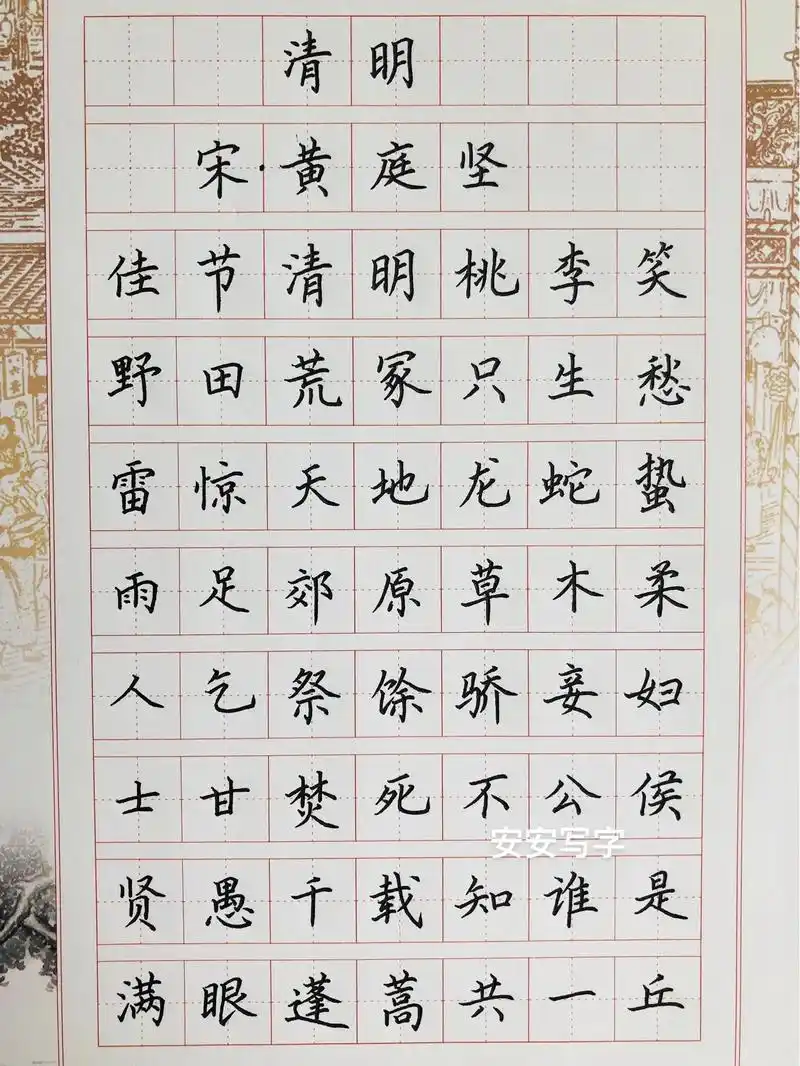 清明
宋·黄庭坚
佳节清明桃李笑
野田荒冢只生愁
雷惊天地龙蛇蛰
雨足郊原草木柔
人乞祭馀骄妾妇
士甘焚死不公侯
安安写字
贤愚千载知谁是
满眼蓬蒿共一丘